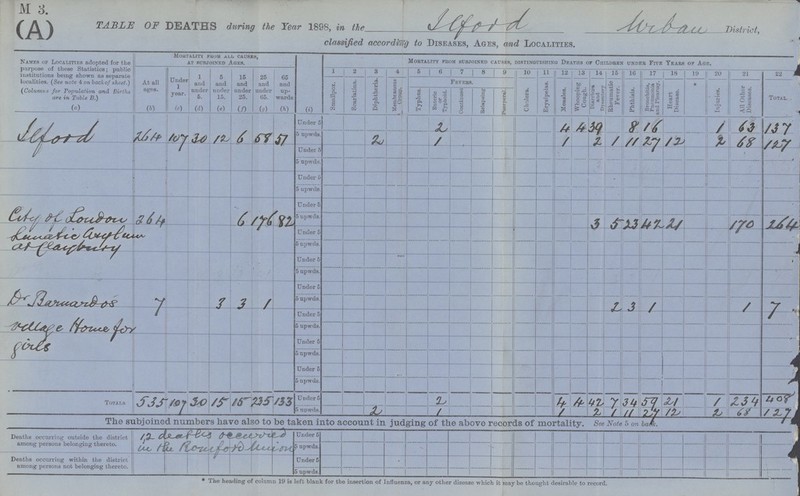 M 3.
(A)
TABLE OF DEATHS during the Year 1898, in the Ilford Urban District,
classified according to DISEASES, AGES, and LOCALITIES.
NAMES OF LOCALITIES adopted for the purpose of these Statistics; public institutions being shown as separate localities. (See note 4 on back of sheet.)
(Columns for Population and Births are in Table B.)
(a)
MORTALITY FROM ALL CAUSES, AT SUBJOINED AGES.
At all ages. Under 1 year. 1 and under 5. 5 and under 15. 15 and under 25. 25 and under 65. 65 and up-wards
(b) (c) (d) (e) (f) (g) (h) (i)
MORTALITY FROM SUBJOINED CAUSES, DISTINGUISHING DEATHS OF CHILDREN UNDER FIVE YEARS OF AGE.
1 2 3 4 5 6 7 8 9 10 11 12 13 14 15 16 17 18 19 20 21 22
Smallpox. Scarlatina. Diphtheria. Membranous Croup. FEVERS. Typhus. Enteric or Typhoid. Continued. Relapsing. Puerperal. Cholera. Erysipelas. Measles. Whooping Cough. Diarrhœa and Dysentery. Rheumatic Fever. Phthisis. Bronchitis, Pneumonia, and Pleurisy. Heart Disease. * Injuries. All Other Diseases. TOTAL.
Ilford 264 107 30 12 6 58 51 Under 5 2 4 4 39 8 16 1 63 137
5 upwds. 2 1 1 2 1 11 27 12 2 68 127
Under 5
5 upwds.
Under 5
5 upwds.
Under 5
City of London 264 6 176 82 5 upwds. 3 5 23 42 21 170 264
Lunatic Asylum Under 5
at Claybury 5 upwds.
Under 5
5 upwds.
Under 5
Dr Barnardo's 7 3 3 1 5 upwds. 2 3 1 1 7
Under 5
village Home for 5 upwds.
girls Under 5
5 upwds.
Under 5
5 upwds.
TOTALS 535 107 30 15 15 235 133 Under 5 2 4 4 42 7 34 59 21 1 234 408
5 upwds. 2 1 1 2 1 11 27 12 2 68 127
The subjoined numbers have also to be taken into account in judging of the above records of mortality. See Note 5 on back.
Deaths occurring outside the district among persons belonging thereto. 12 deaths occurred in the Romford Union Under 5
5 upwds.
Deaths occurring within the district among persons not belonging thereto. Under 5
5 upwds.
* The heading of column 19 is left blank for the insertion of Influenza, or any other disease which it may be thought desirable to record.